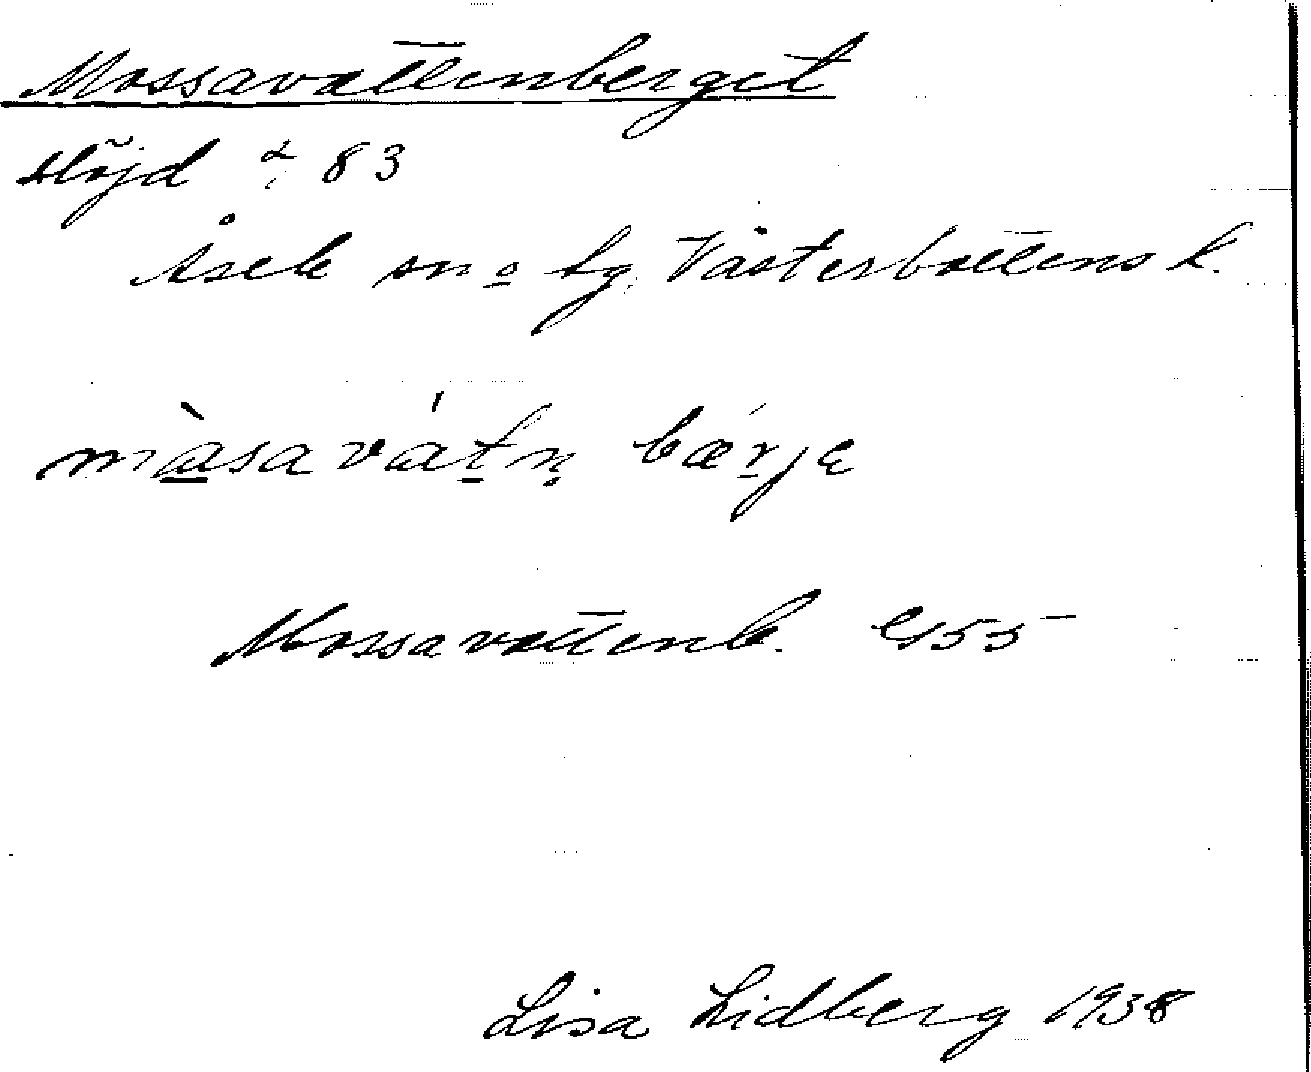 Mossavattenberget
Höjd α: 83
Åsele sn o tg. Västerbottens l.
màsa vátṇ bærjɛ
Mossavattenb. G55
Lisa Lidberg 1938